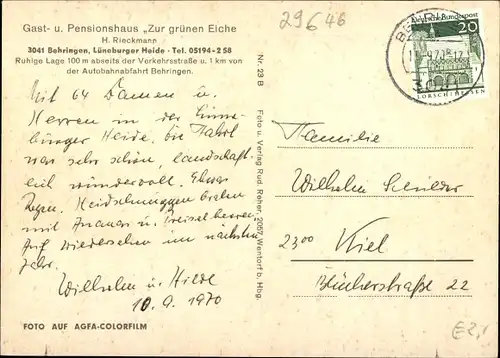 Gast- u. Pensionshaus „Zur grünen Eiche
H. Rieckmann
3041 Behringen, Lüneburger Heide · Tel. 05194-2 58
Ruhige Lage 100 m abseits der Verkehrsstraße u. 1 km von
der Autobahnabfahrt Behringen.
Mit 64 Damen u.
Herren in der Lüne-
burger Heide. Die Fahrt
war sehr schön, landschaft-
lich wundervoll. Etwas
Regen. Heidschnuggen braten
mit Ananas u. Preiselbeeren.
Auf Wiedersehen im nächsten
Jahr.
Wilhelm u. Hilde
10.9.1970
FOTO AUF AGFA-COLORFILM
Nr. 23 B
Foto u. Verlag Rud. Reher, 2057 Wentorf b. Hbg.
29646
Deutsche Bundespost
20
LORSCH/HESSEN
Familie
Wilhelm
2300 Kiel
Blücherstraße 22
€2,